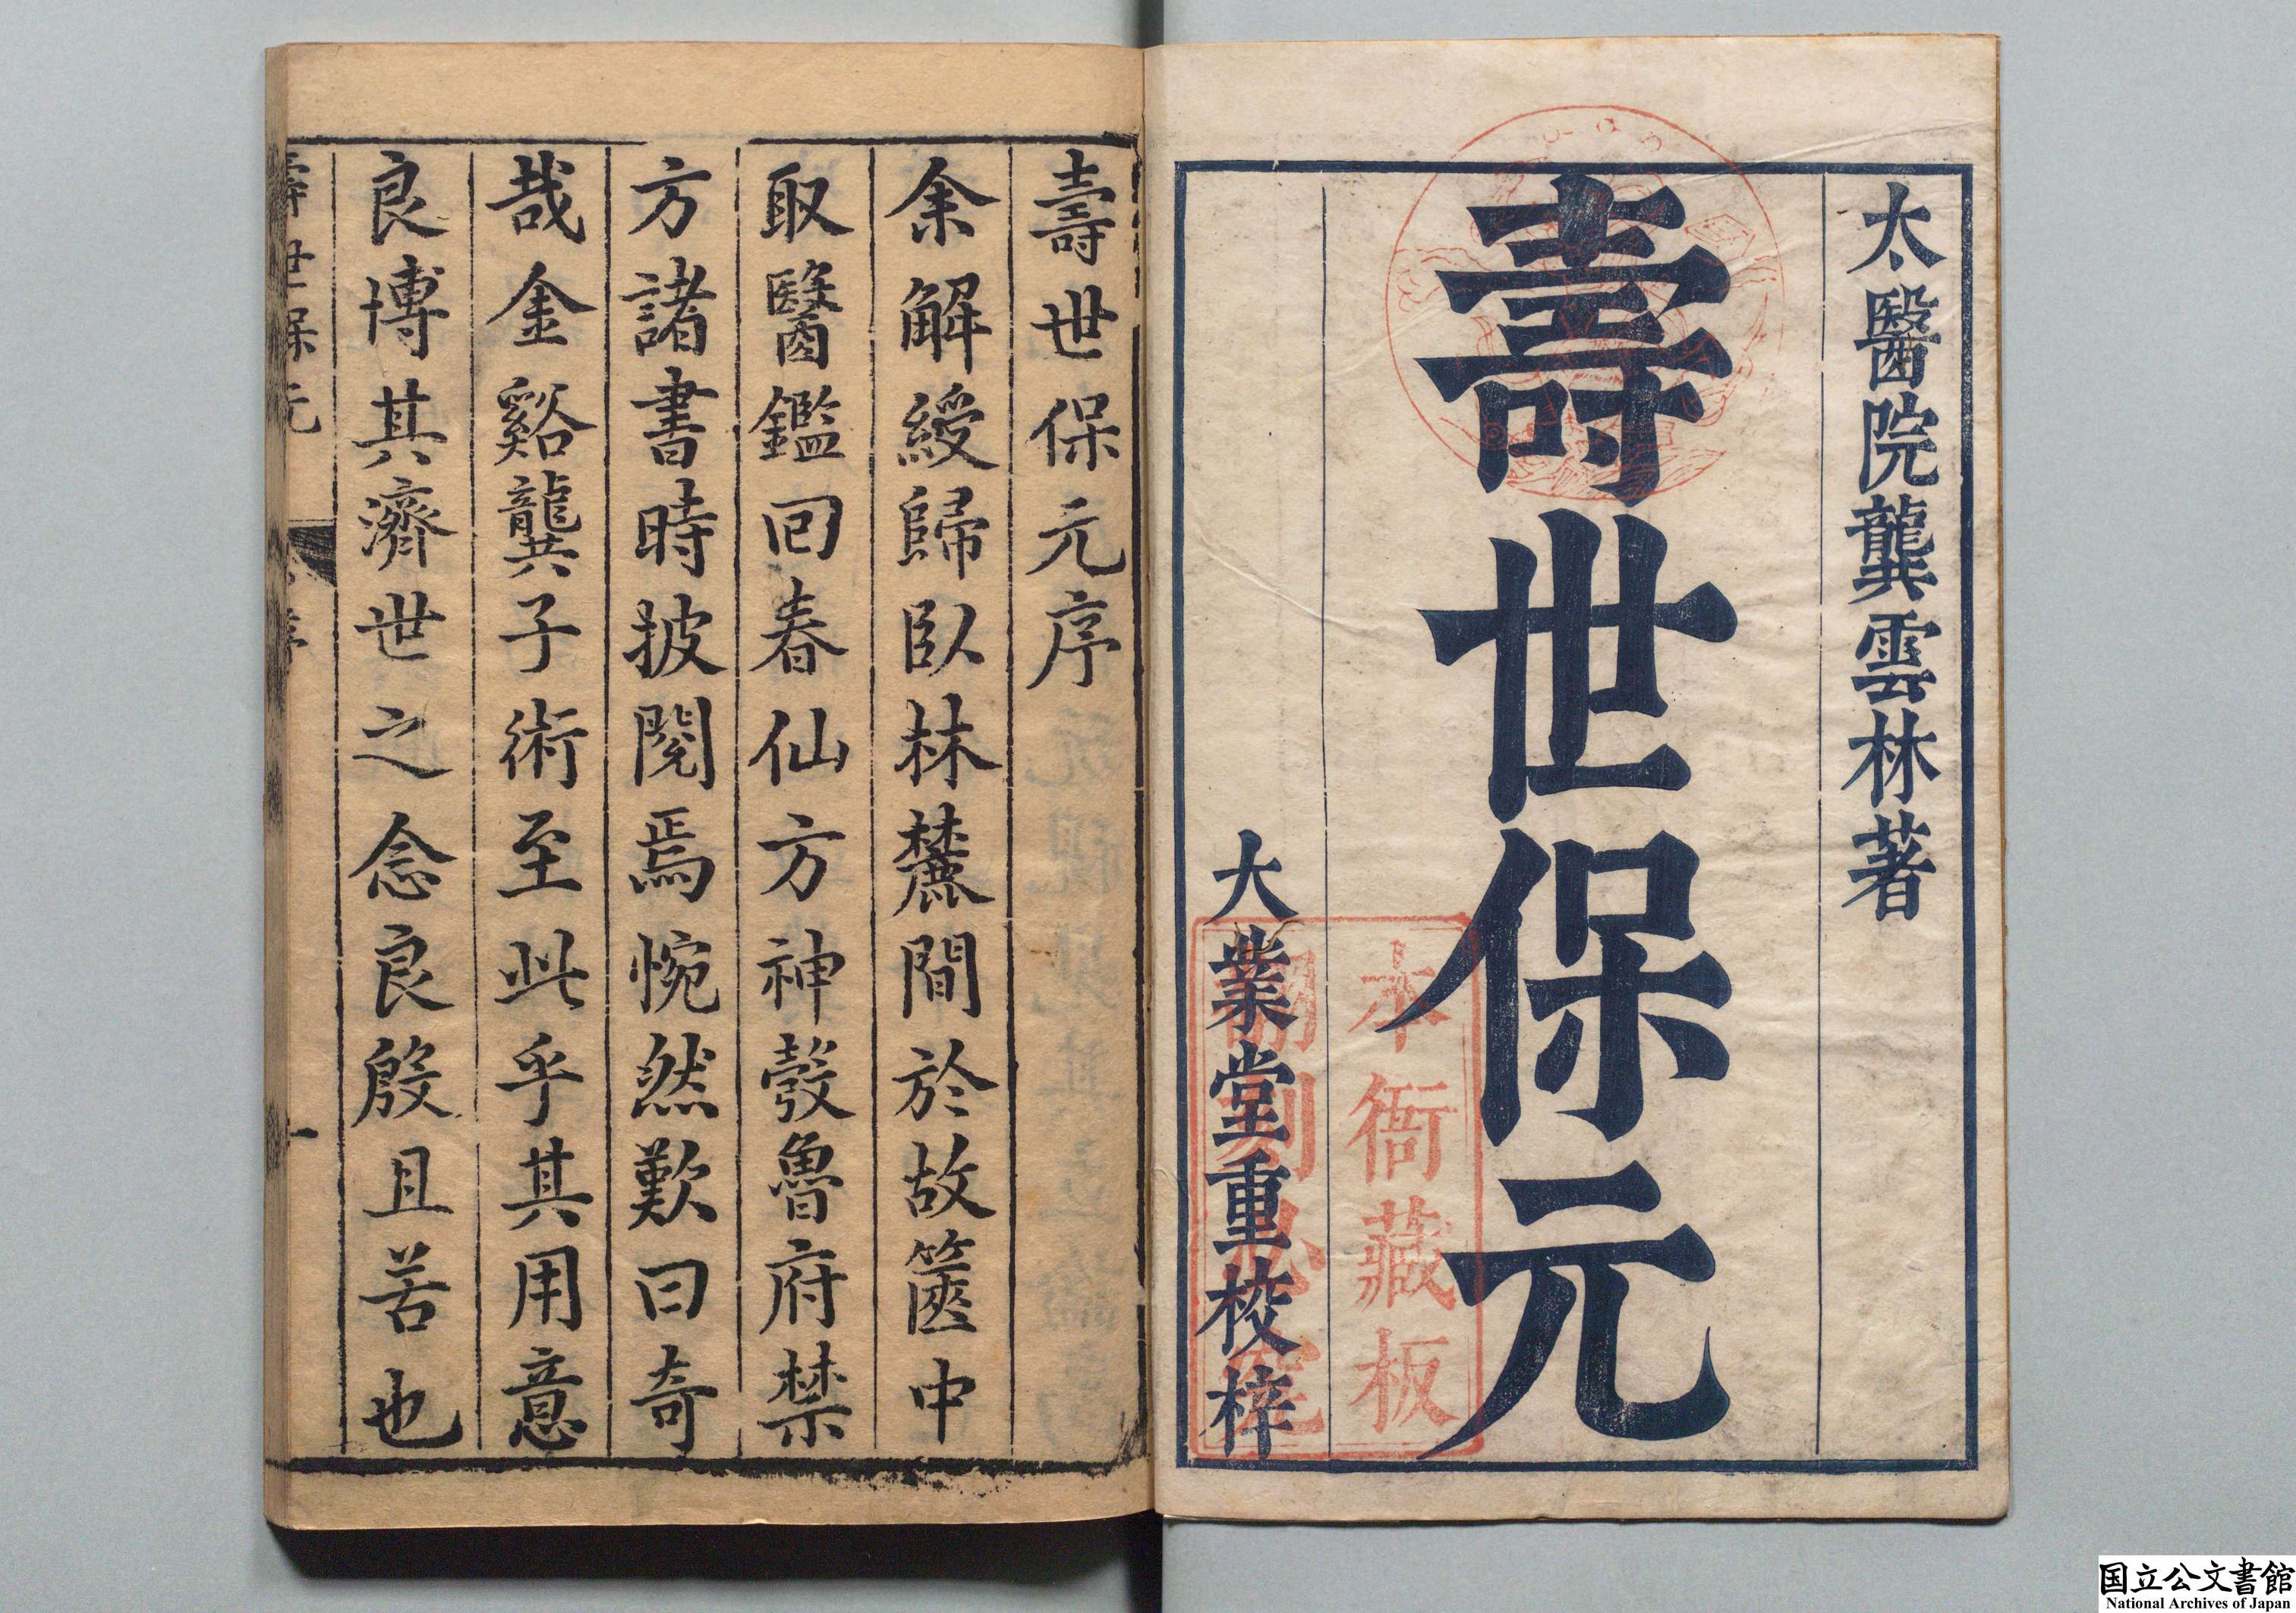 太醫院龔雲林著
壽世保元
大業堂重校梓
本衙藏板
翻刻必究
壽世保元序
余解綬歸臥林麓間於故篋中
取醫鑑回春仙方神彀魯府禁
方諸書時披閱焉惋然歎曰奇
哉金谿龔子術至此乎其用意
良博其濟世之念良殷且苦也
壽世保元
序
一
国立公文書館
National Archives of Japan